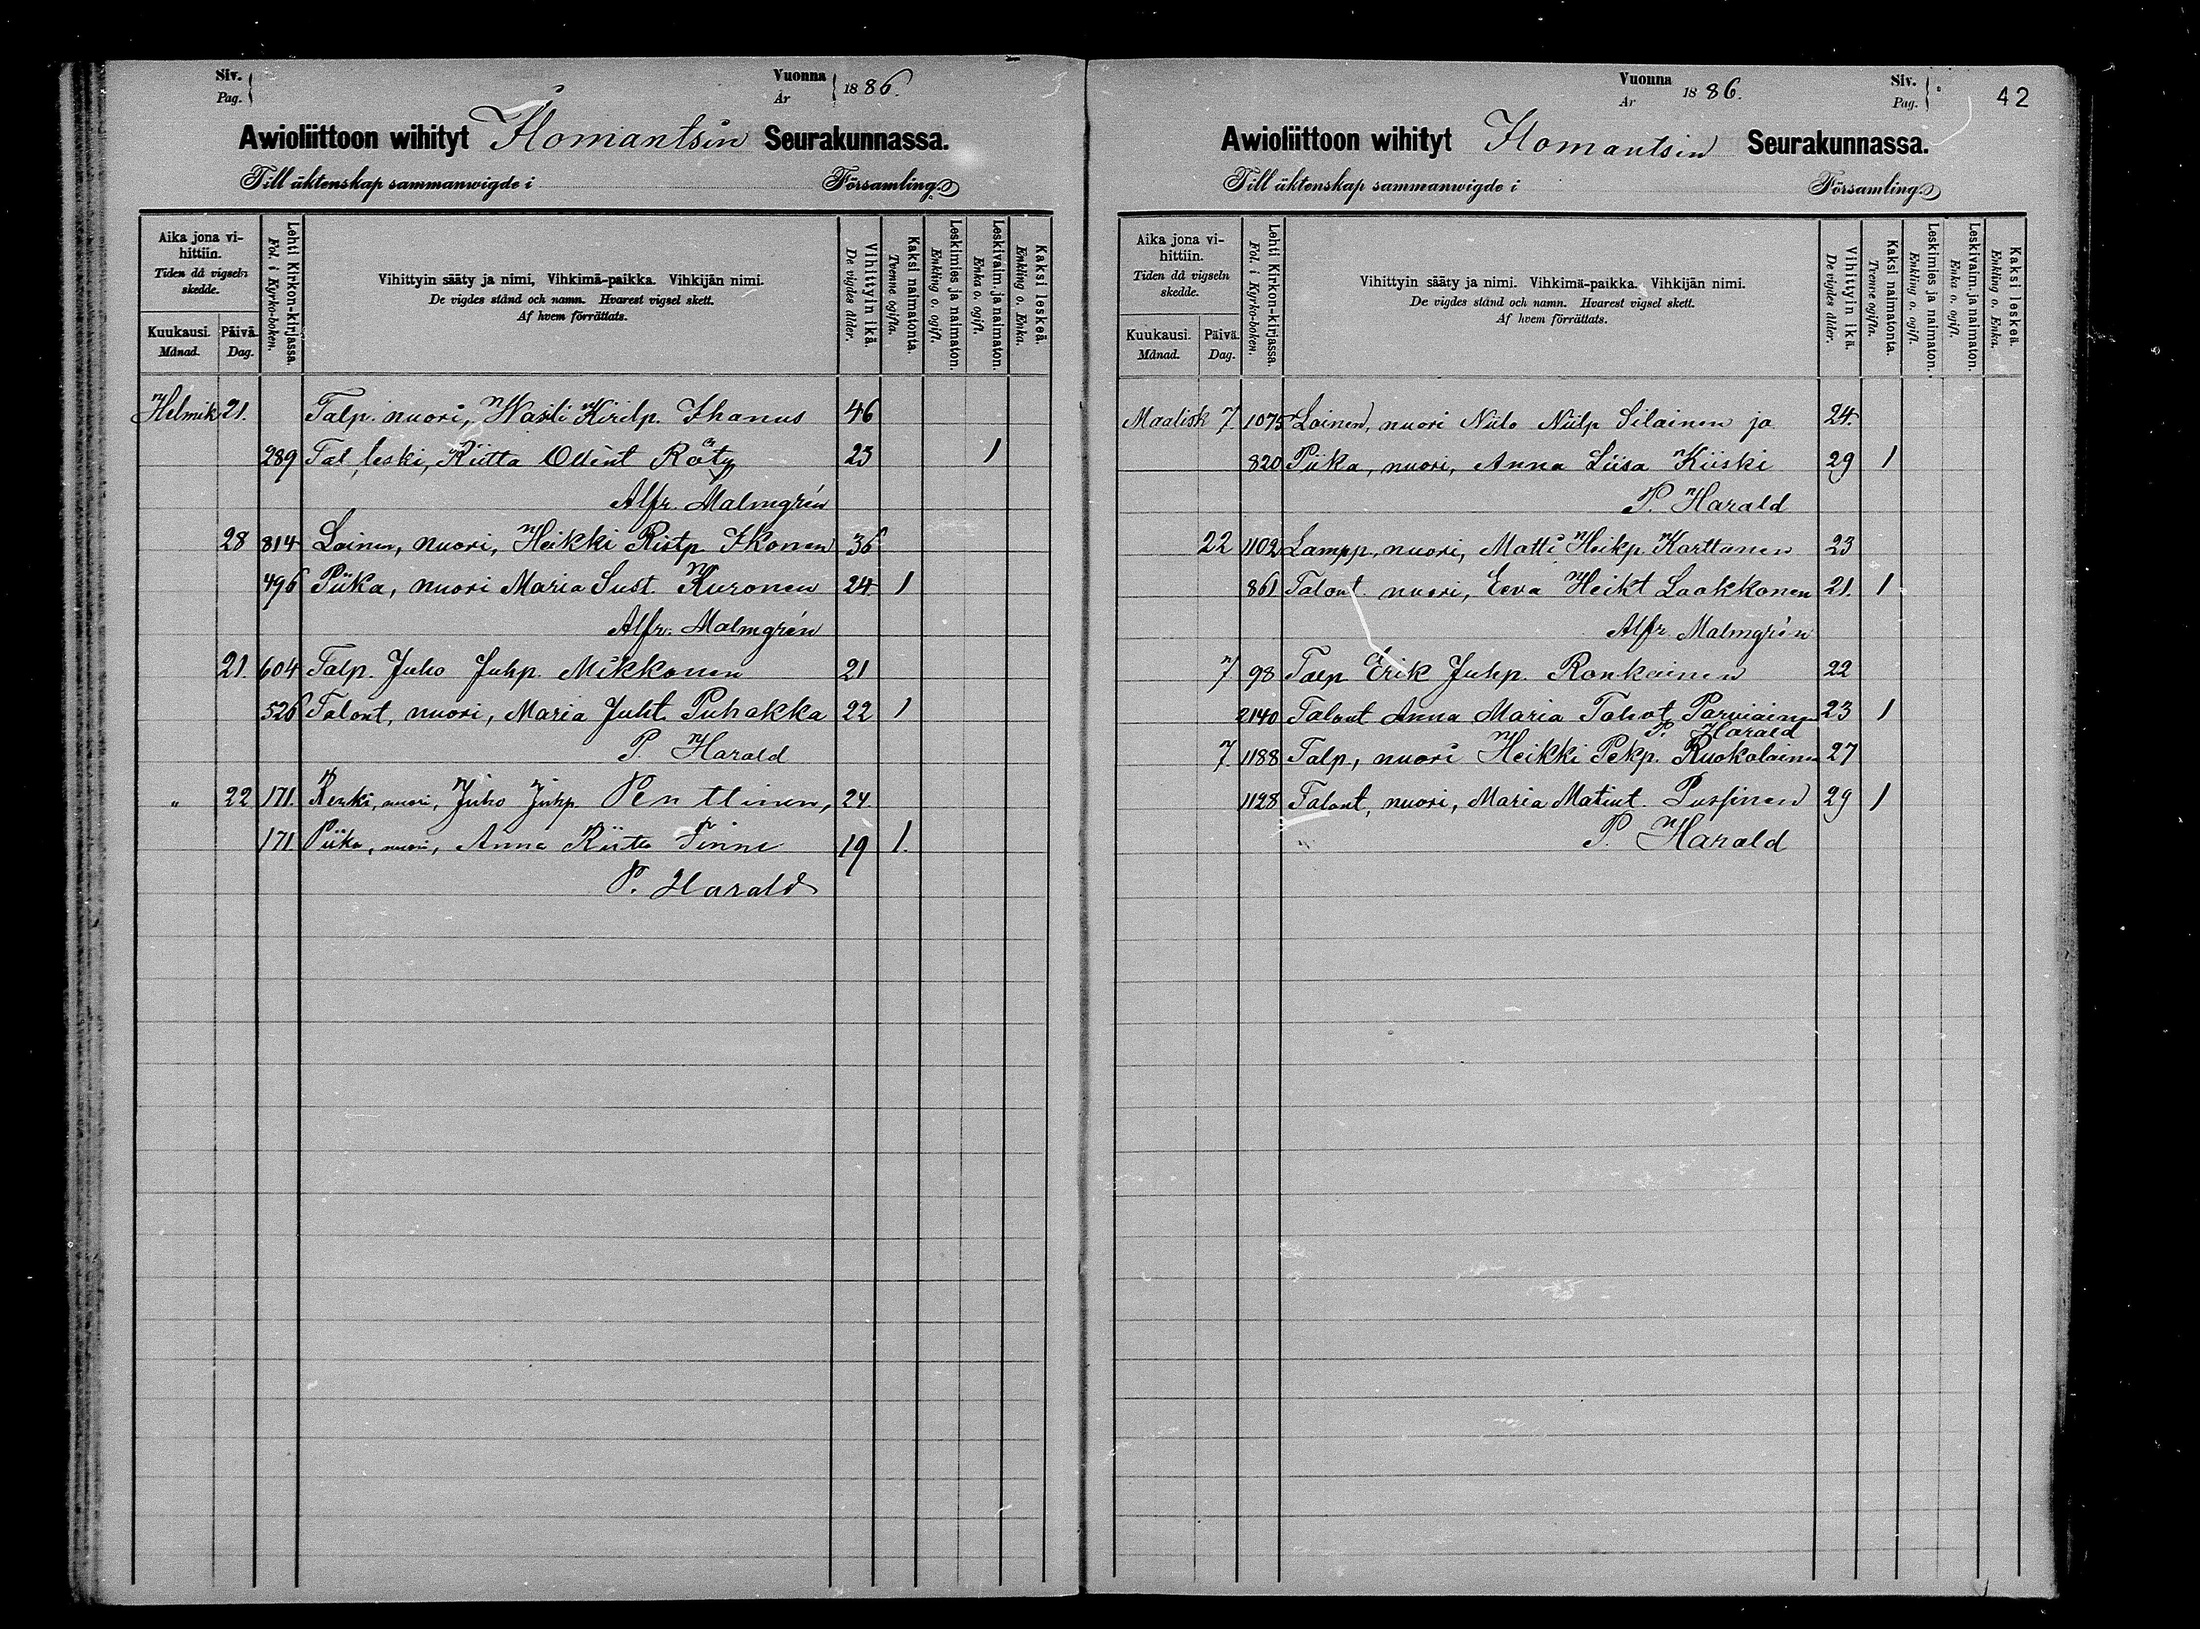 Siv.
Pag.
Vuonna
År
1886.
Awioliittoon wihityt Ilomantsin Seurakunnassa.
Till äktenskap sammanwigde i Församling.
Aika jona vi-
hittiin.
Tiden då vigseln
skedde.
Kuukausi.
Månad.
Päivä.
Dag.
Lehti Kirkon-kirjassa.
Fol. i Kyrko-boken.
Vihittyin sääty ja nimi, Vihkimä-paikka. Vihkijän nimi.
De vigdes stånd och namn. Hvarest vigsel skett.
Af hvem förrättats.
Vihittyin ikä.
De vigdes ålder.
Kaksi naimatonta.
Tvenne ogifta.
Leskimies ja naimaton.
Enkling o. ogift.
Leskivaim. ja naimaton.
Enka o. ogift.
Kaksi leskeä.
Enkling o. Enka.
Helmik 21. Talp. nuori, Wasili Kirilp. Ihanus 46
289 Tal leski, Riitta Ollint Räty 23 1
Alfr. Malmgrén
28 814 Loinen, nuori, Heikki Ristp Ikonen 36
496 Piika, nuori Maria Sust. Kuronen 24 1
Alfr. Malmgrén
21. 604 Talp. Juho Juhp. Mikkonen 21
526 Talont, nuori, Maria Juht. Puhakka 22 1
P. Harald
" 22 171. Renki, nuori, Juho Juhp Penttinen, 24.
171 Piika, nuori, Anna Riitta Tinni 19 1.
P. Harald
Vuonna
År
1886.
Siv.
Pag.
42
Awioliittoon wihityt Ilomantsin Seurakunnassa.
Till äktenskap sammanwigde i Församling.
Aika jona vi-
hittiin.
Tiden då vigseln
skedde.
Kuukausi.
Månad.
Päivä.
Dag.
Lehti Kirkon-kirjassa.
Fol. i Kyrko-boken.
Vihittyin sääty ja nimi. Vihkimä-paikka. Vihkijän nimi.
De vigdes stånd och namn. Hvarest vigsel skett.
Af hvem förrättats.
Vihittyin ikä.
De vigdes ålder.
Kaksi naimatonta.
Tvenne ogifta.
Leskimies ja naimaton.
Enkling o. ogift.
Leskivaim. ja naimaton.
Enka o. ogift.
Kaksi leskeä.
Enkling o. Enka.
Maalisk 7. 1075 Loinen, nuori Niilo Niilp Silainen ja 24.
820 Piika, nuori, Anna Liisa Kiiski 29 1
P. Harald
22 1102 Lampp, nuori, Matti Heikp. Karttunen 23
861 Talont. nuori, Eeva Heikt Laakkonen 21. 1
Alfr. Malmgrén
7 98 Talp Erik Juhp. Ronkainen 22
2140 Talont Anna Maria Tahvt Parviainen 23 1
P. Harald
7. 1188 Talp, nuori Heikki Pekp. Ruokolainen 27
1128 Talont, nuori, Maria Matint. Pussinen 29 1
P. Harald